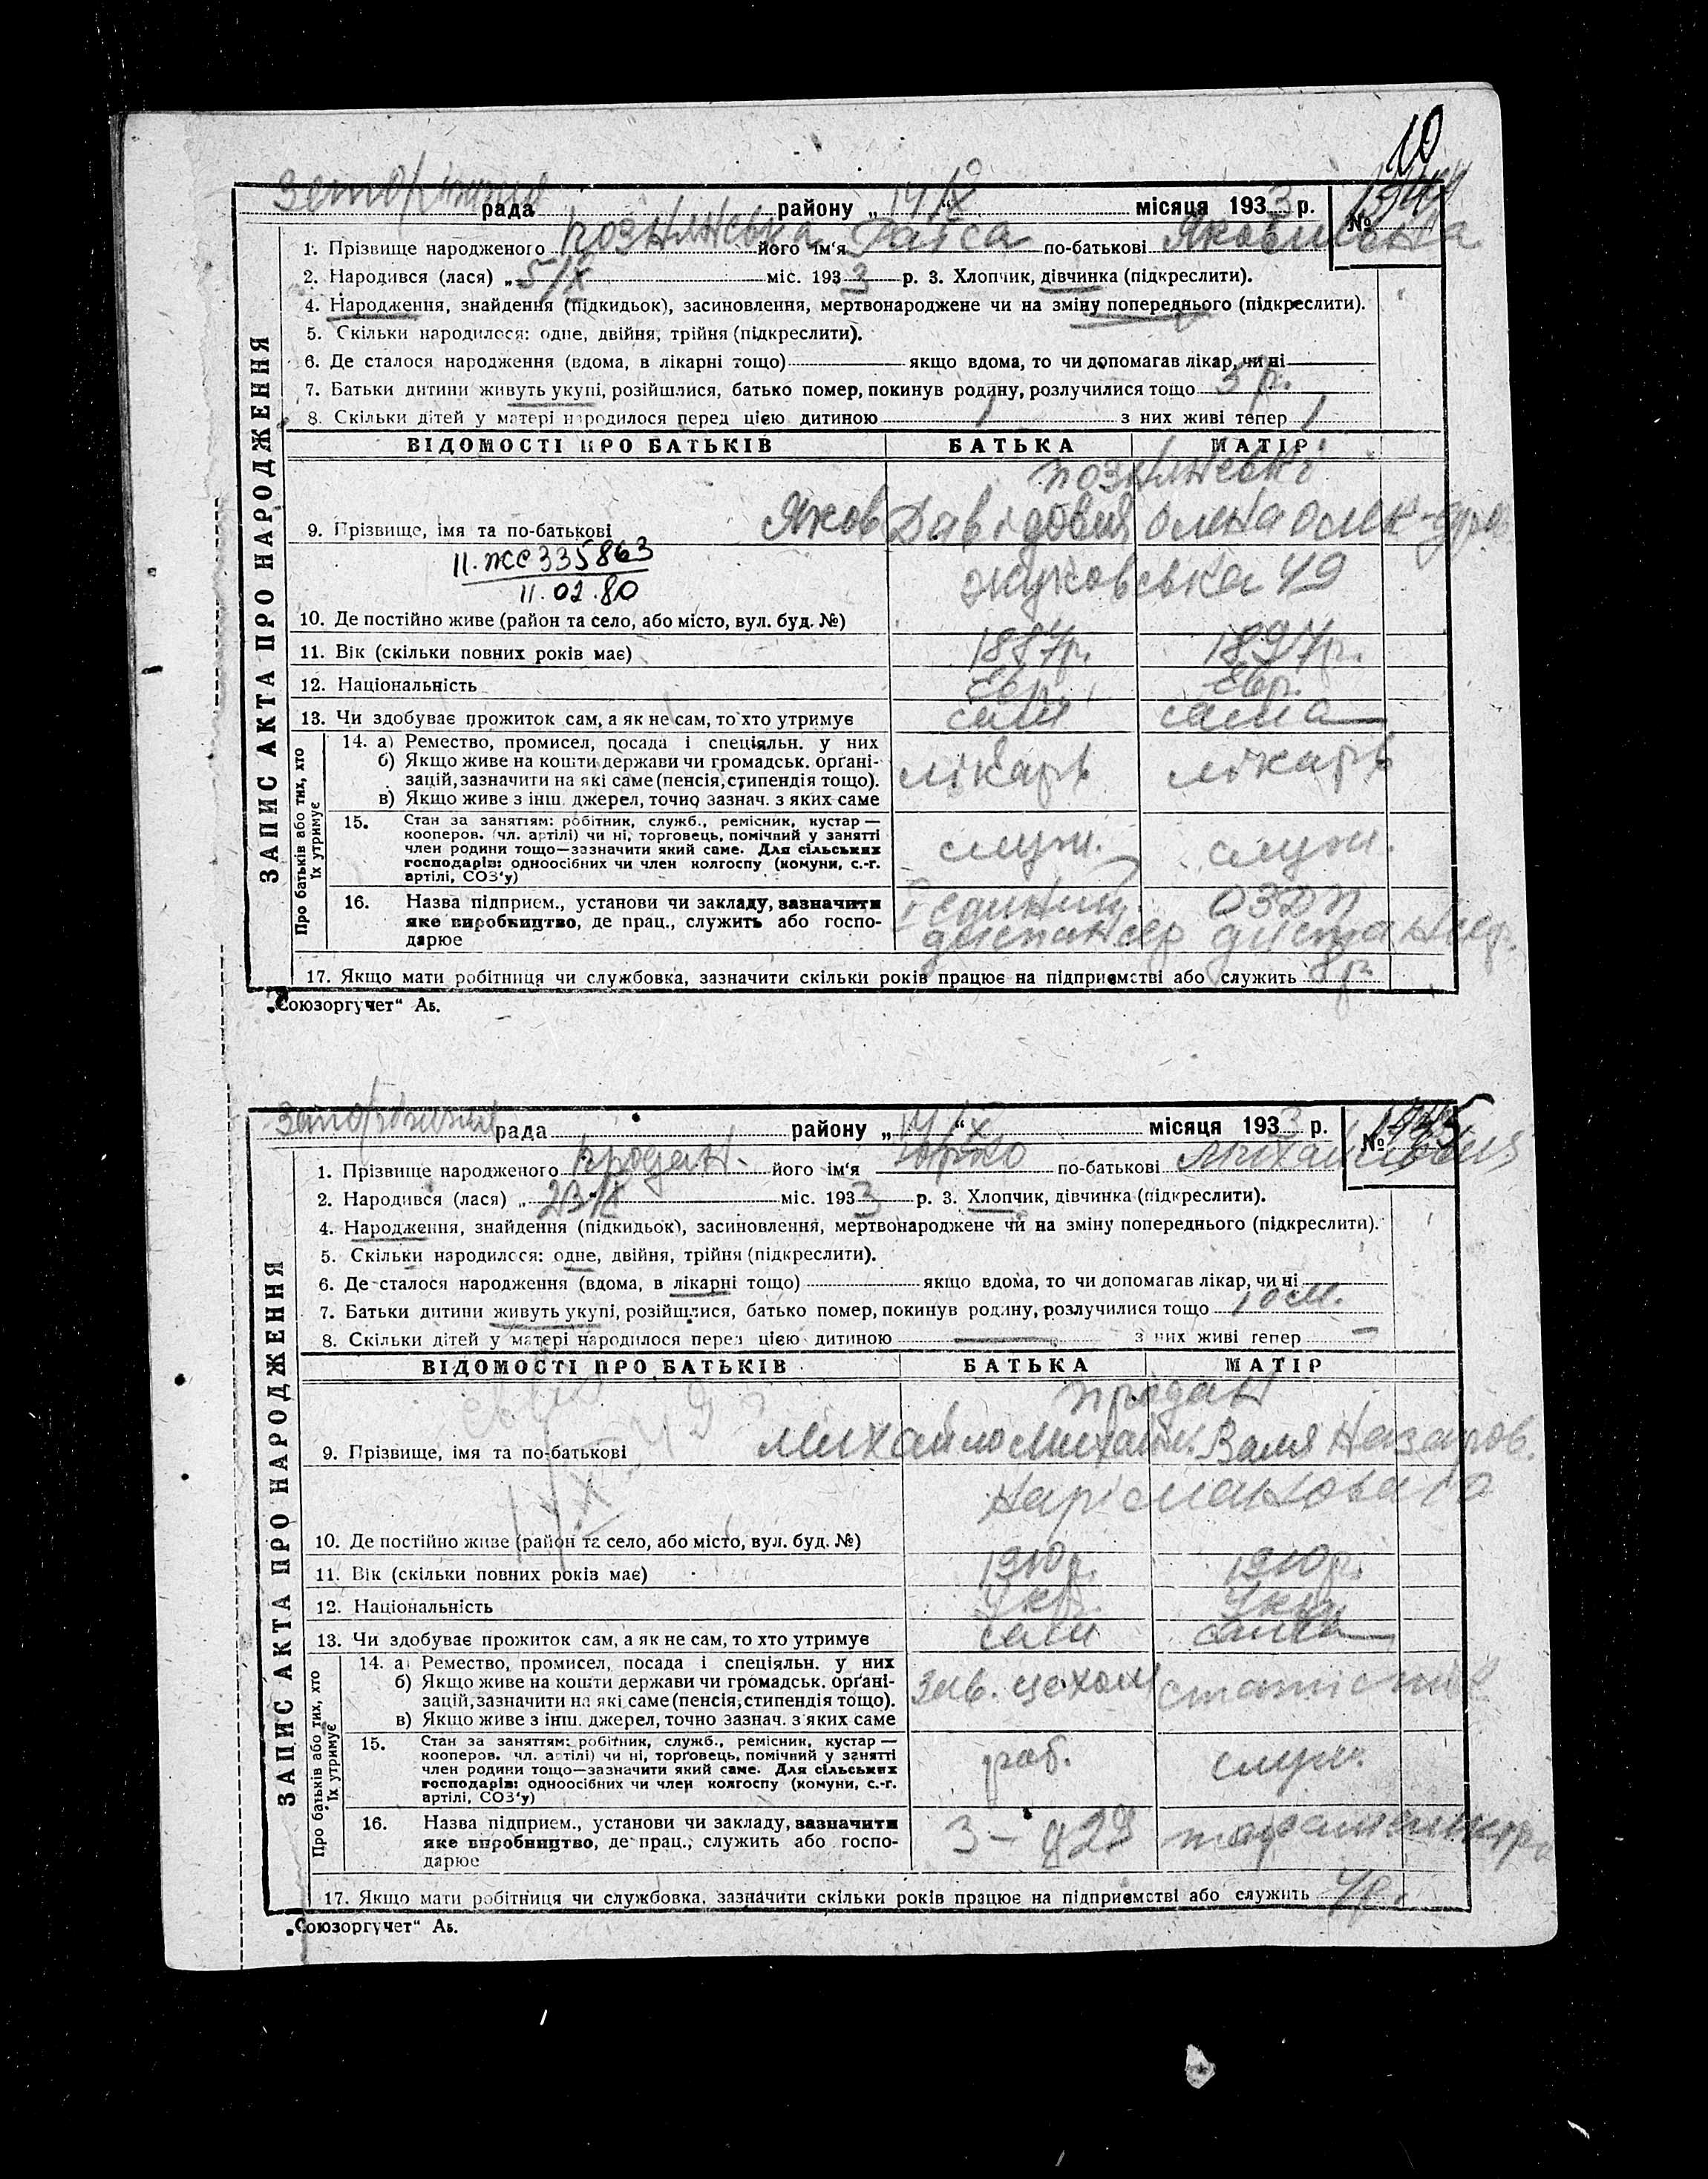 10
рада району „14/X“ місяця 1933 р. №
1. Прізвище народженого Познянська його ім'я Раїса по-батькові Яковлівна
2. Народився (лася) „5/X міс. 1933 р. 3. Хлопчик, дівчинка (підкреслити).
4. Народження, знайдення (підкидьок), засиновлення, мертвонароджене чи на зміну попереднього (підкреслити).
5. Скільки народилося: одне, двійня, трійня (підкреслити).
6. Де сталося народження (вдома, в лікарні тощо) якщо вдома, то чи допомагав лікар, чи ні
7. Батьки дитини живуть укупі, розійшлися, батько помер, покинув родину, розлучилися тощо 5 р.
8. Скільки дітей у матері народилося перед цією дитиною 1 з них живі тепер 1
ЗАПИС АКТА ПРО НАРОДЖЕННЯ
ВІДОМОСТІ ПРО БАТЬКІВ БАТЬКА МАТІР
9. Прізвище, імя та по-батькові Яков Давідович Олена Олек-дров
II. ЖС 335863
11.02.80
Жуковська 49
10. Де постійно живе (район та село, або місто, вул. буд. №)
11. Вік (скільки повних років має) 1887р. 1897р.
12. Національність Євр. Євр.
13. Чи здобуває прожиток сам, а як не сам, то хто утримує сам сама
Про батьків або тих, хто їх утримує
14. а) Ремество, промисел, посада і спеціяльн. у них
б) Якщо живе на кошти держави чи громадськ. орґані-
зацій, зазначити на які саме (пенсія, стипендія тощо). лікарь лікарь
в) Якщо живе з інш. джерел, точно зазнач. з яких саме
15. Стан за заняттям: робітник, служб., ремісник, кустар —
кооперов. (чл. артілі) чи ні, торговець, помічний у занятті
член родини тощо—зазначити який саме. Для сільських служ. служ.
господарів: одноосібних чи член колгоспу (комуни, с.-г.
артілі, СОЗ'у)
16. Назва підприєм., установи чи закладу, зазначити I єдиний ОЗДП
яке виробництво, де прац., служить або госпо- диспансер диспансер
дарює
17. Якщо мати робітниця чи службовка, зазначити скільки років працює на підприємстві або служить 8 р.
„Союзоргучет“ Аь.
рада району „14/X“ місяця 1933 р. № 1945
1. Прізвище народженого Продан його ім'я Юрко по-батькові Михайлович
2. Народився (лася) „ міс. 1933 р. 3. Хлопчик, дівчинка (підкреслити).
4. Народження, знайдення (підкидьок), засиновлення, мертвонароджене чи на зміну попереднього (підкреслити).
5. Скільки народилося: одне, двійня, трійня (підкреслити).
6. Де сталося народження (вдома, в лікарні тощо) якщо вдома, то чи допомагав лікар, чи ні
7. Батьки дитини живуть укупі, розійшлися, батько помер, покинув родину, розлучилися тощо 10 м.
8. Скільки дітей у матері народилося перед цією дитиною — з них живі тепер —
ЗАПИС АКТА ПРО НАРОДЖЕННЯ
ВІДОМОСТІ ПРО БАТЬКІВ БАТЬКА МАТІР
Продан
9. Прізвище, імя та по-батькові Михайло Михайл. Валя Назаров.
Наріманова 10
10. Де постійно живе (район та село, або місто, вул. буд. №)
11. Вік (скільки повних років має) 1910р. 1910р.
12. Національність Укр. Укр.
13. Чи здобуває прожиток сам, а як не сам, то хто утримує сам сама
Про батьків або тих, хто їх утримує
14. а) Ремество, промисел, посада і спеціяльн. у них
б) Якщо живе на кошти держави чи громадськ. орґані- Зав. цехом статістик
зацій, зазначити на які саме (пенсія, стипендія тощо).
в) Якщо живе з інш. джерел, точно зазнач. з яких саме
15. Стан за заняттям: робітник, служб., ремісник, кустар —
кооперов. чл. артілі) чи ні, торговець, помічний у занятті
член родини тощо—зазначити який саме. Для сільських роб. служ.
господарів: одноосібних чи член колгоспу (комуни, с.-г.
артілі, СОЗ'у)
16. Назва підприєм., установи чи закладу, зазначити
яке виробництво, де прац., служить або госпо-
дарює
17. Якщо мати робітниця чи службовка, зазначити скільки років працює на підприємстві або служить 4р.
„Союзоргучет“ Аь.